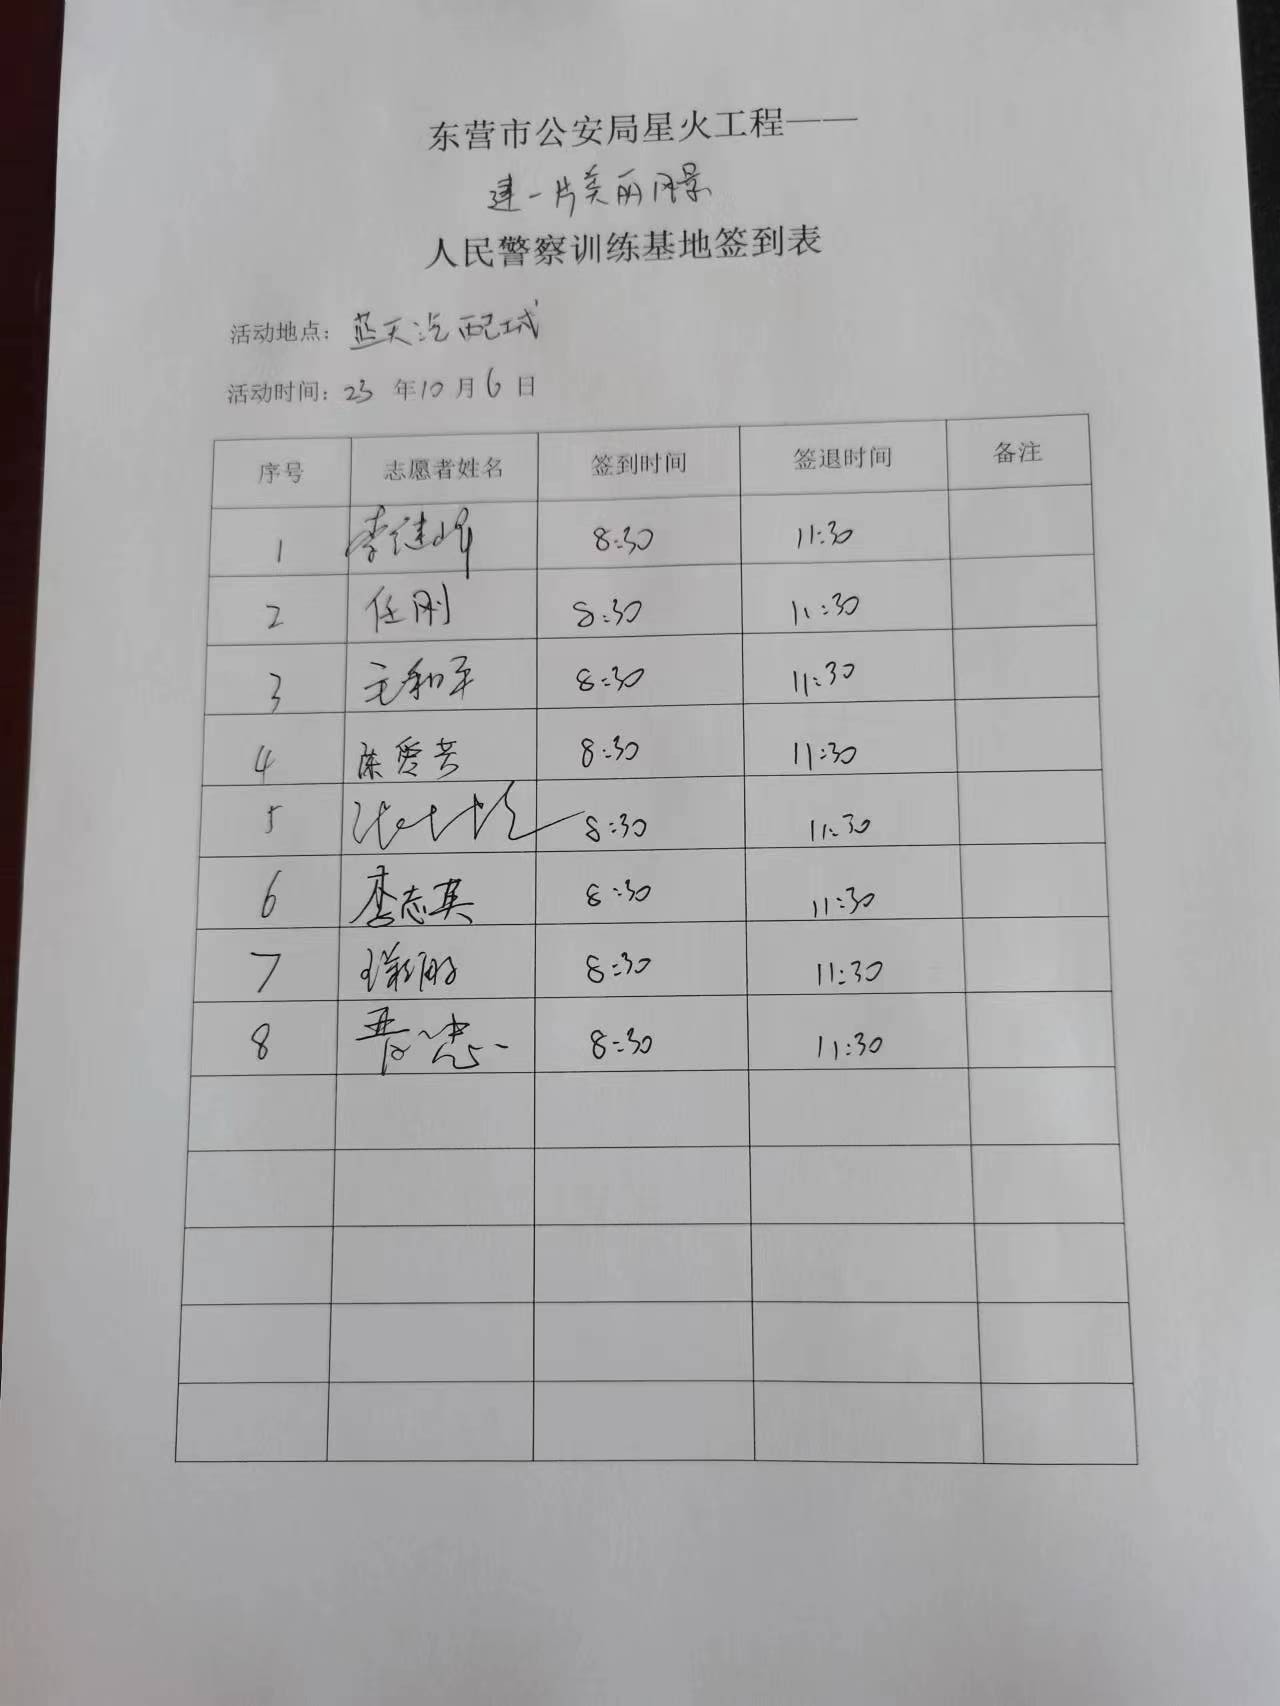 东营市公安局星火工程——
建一片美丽风景
人民警察训练基地签到表
活动地点：蓝天汽配城
活动时间：23 年10 月6 日
序号 志愿者姓名 签到时间 签退时间 备注
1 李继峰 8:30 11:30
2 任刚 8:30 11:30
3 王和平 8:30 11:30
4 陈爱芳 8:30 11:30
5 8:30 11:30
6 李志英 8:30 11:30
7 8:30 11:30
8 8:30 11:30